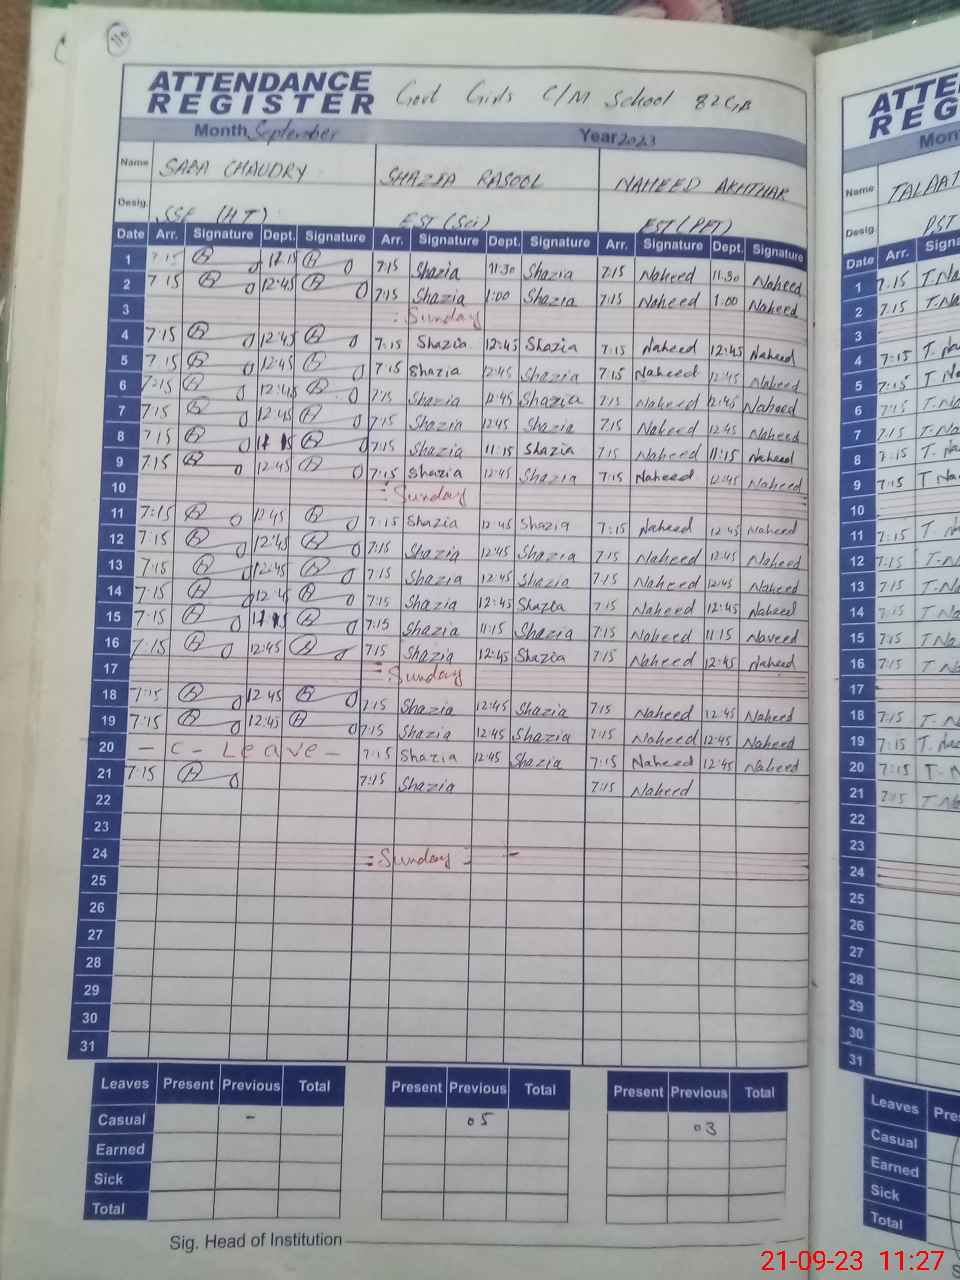 110
ATTENDANCE
REGISTER Govt Girls C/M School 82GB
Month September Year 2023
Name SABA CHAUDRY SHAZIA RASOOL NAHEED AKHTHAR
Desig. SSE (HT) EST (Sci) EST (PET)
Date Arr. Signature Dept. Signature Arr. Signature Dept. Signature Arr. Signature Dept. Signature
1 7:15 7:15 Shazia 11:30 Shazia 7:15 Naheed 11:30 Naheed
2 7:15 12:45 7:15 Shazia 1:00 Shazia 7:15 Naheed 1:00 Naheed
3 Sunday
4 7:15 12:45 7:15 Shazia 12:45 Shazia 7:15 Naheed 12:45 Naheed
5 7:15 12:45 7:15 Shazia 12:45 Shazia 7:15 Naheed 12:45 Naheed
6 7:15 12:45 7:15 Shazia 12:45 Shazia 7:15 Naheed 12:45 Naheed
7 7:15 12:45 7:15 Shazia 12:45 Shazia 7:15 Naheed 12:45 Naheed
8 7:15 7:15 Shazia 11:15 Shazia 7:15 Naheed 11:15 Naheed
9 7:15 12:45 7:15 Shazia 12:45 Shazia 7:15 Naheed 12:45 Naheed
10 Sunday
11 7:15 12:45 7:15 Shazia 12:45 Shazia 7:15 Naheed 12:45 Naheed
12 7:15 12:45 7:15 Shazia 12:45 Shazia 7:15 Naheed 12:45 Naheed
13 7:15 12:45 7:15 Shazia 12:45 Shazia 7:15 Naheed 12:45 Naheed
14 7:15 12:45 7:15 Shazia 12:45 Shazia 7:15 Naheed 12:45 Naheed
15 7:15 7:15 Shazia 11:15 Shazia 7:15 Naheed 11:15 Naveed
16 7:15 12:45 7:15 Shazia 12:45 Shazia 7:15 Naheed 12:45 Naheed
17 = Sunday
18 7:15 12:45 7:15 Shazia 12:45 Shazia 7:15 Naheed 12:45 Naheed
19 7:15 12:45 7:15 Shazia 12:45 Shazia 7:15 Naheed 12:45 Naheed
20 - C - Leave - 7:15 Shazia 12:45 Shazia 7:15 Naheed 12:45 Naheed
21 7:15 7:15 Shazia 7:15 Naheed
22
23
24 = Sunday = -
25
26
27
28
29
30
31
Leaves Present Previous Total Present Previous Total Present Previous Total
Casual - 05 03
Earned
Sick
Total
Sig. Head of Institution
ATTE
REG
Mon
Name TALAAT
Desig. PST
Date Arr. Signa
1 7:15 T.Na
2 7:15 T.Na
3
4 7:15 T.Na
5 7:15 T Na
6 7:15 T.Na
7 7:15 T.Na
8 7:15 T.Na
9 7:15 T Na
10
11 7:15 T.
12 7:15 T.N
13 7:15 T.N
14 7:15 T.N
15 7:15 T Na
16 7:15 T Na
17
18 7:15 T.
19 7:15 T.Na
20 7:15 T.N
21 7:15 T.N
22
23
24
25
26
27
28
29
30
31
Leaves Pres
Casual
Earned
Sick
Total
21-09-23 11:27